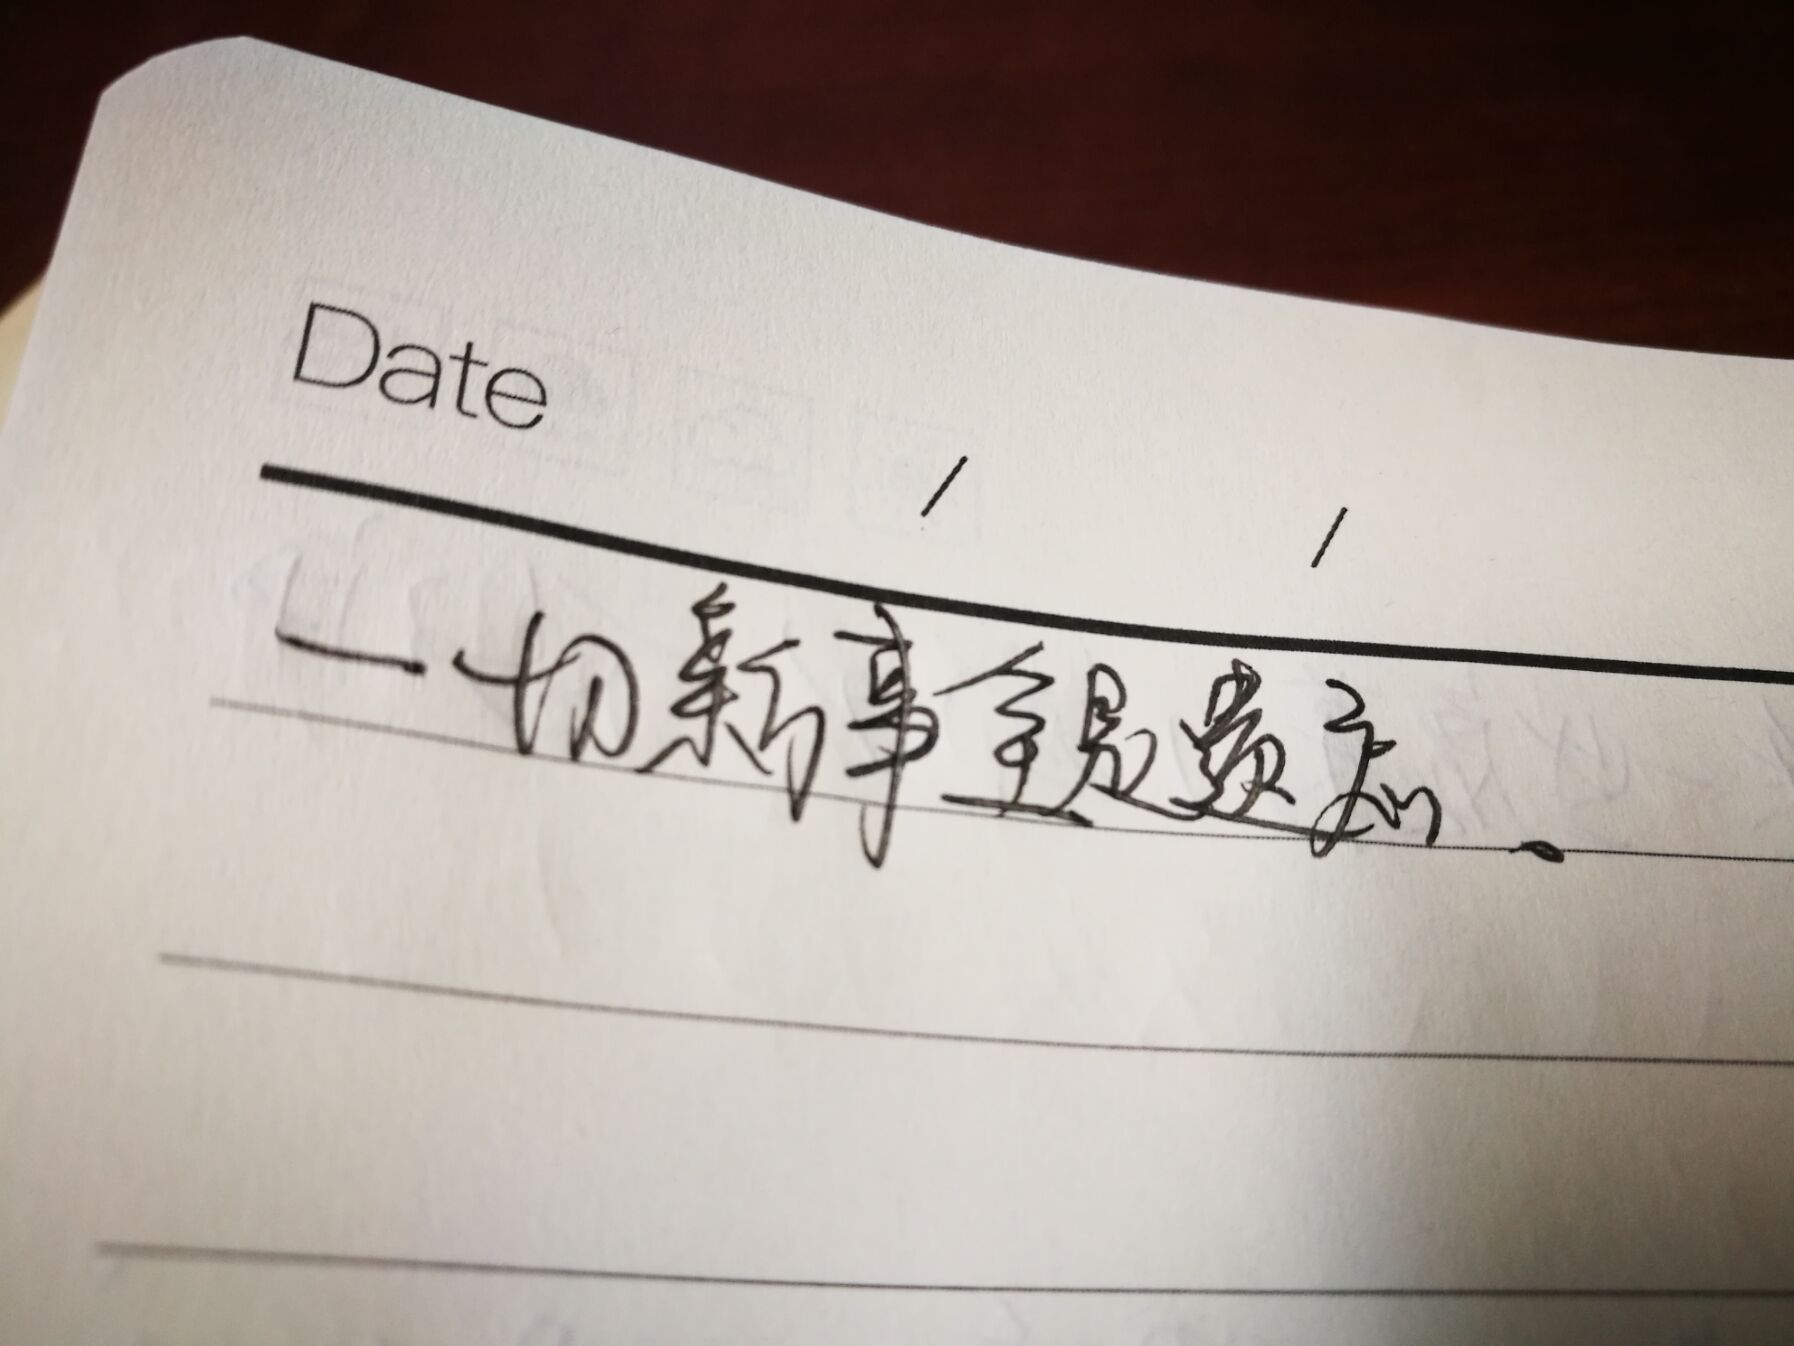 Date / /
一切新事全是遗忘.